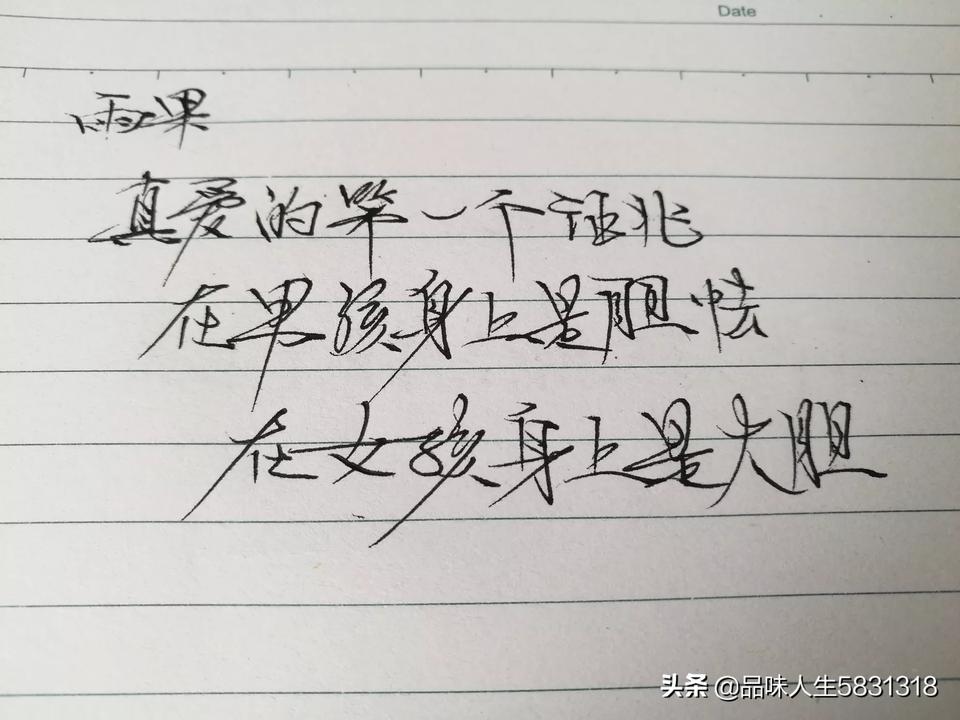 Date
雨果
真爱的第一个证兆
在男孩身上是胆怯
在女孩身上是大胆
头条 @品味人生5831318